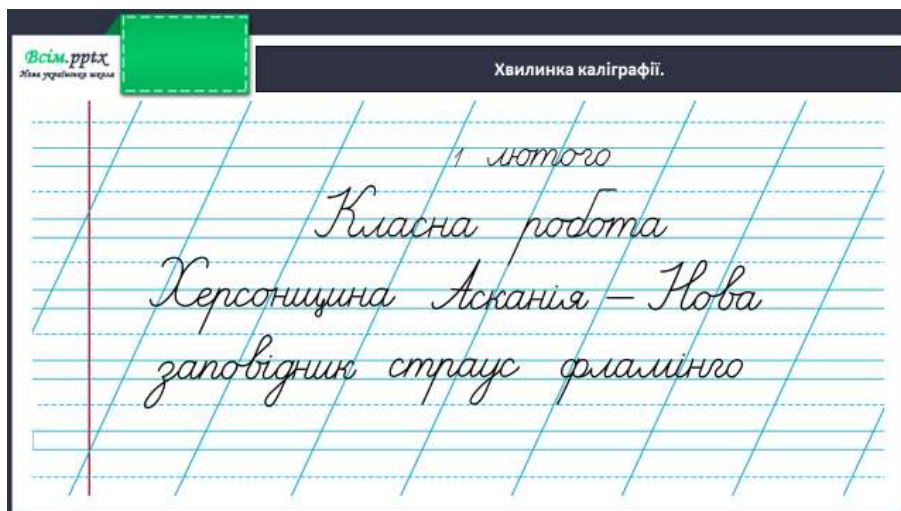 Всім.pptx
Нова українська школа
Хвилинка каліграфії.
1 лютого
Класна робота
Херсонщина Асканія – Нова
заповідник страус фламінго